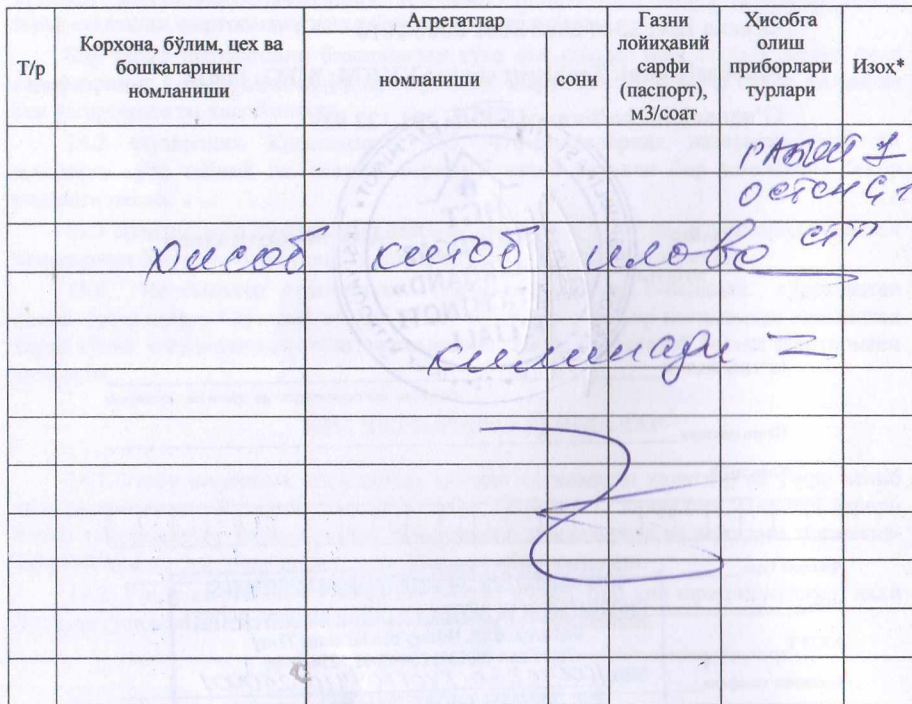 Т/р
Корхона, бўлим, цех ва
бошқалар
номланиши
Агрегатлар
номланиши
сони
Газни
лойиҳавий
сарфи
(паспорт),
м3/соат
Ҳисобга
олиш
приборлари
турлари
Изох*
хисоб китоб илова
килинади =